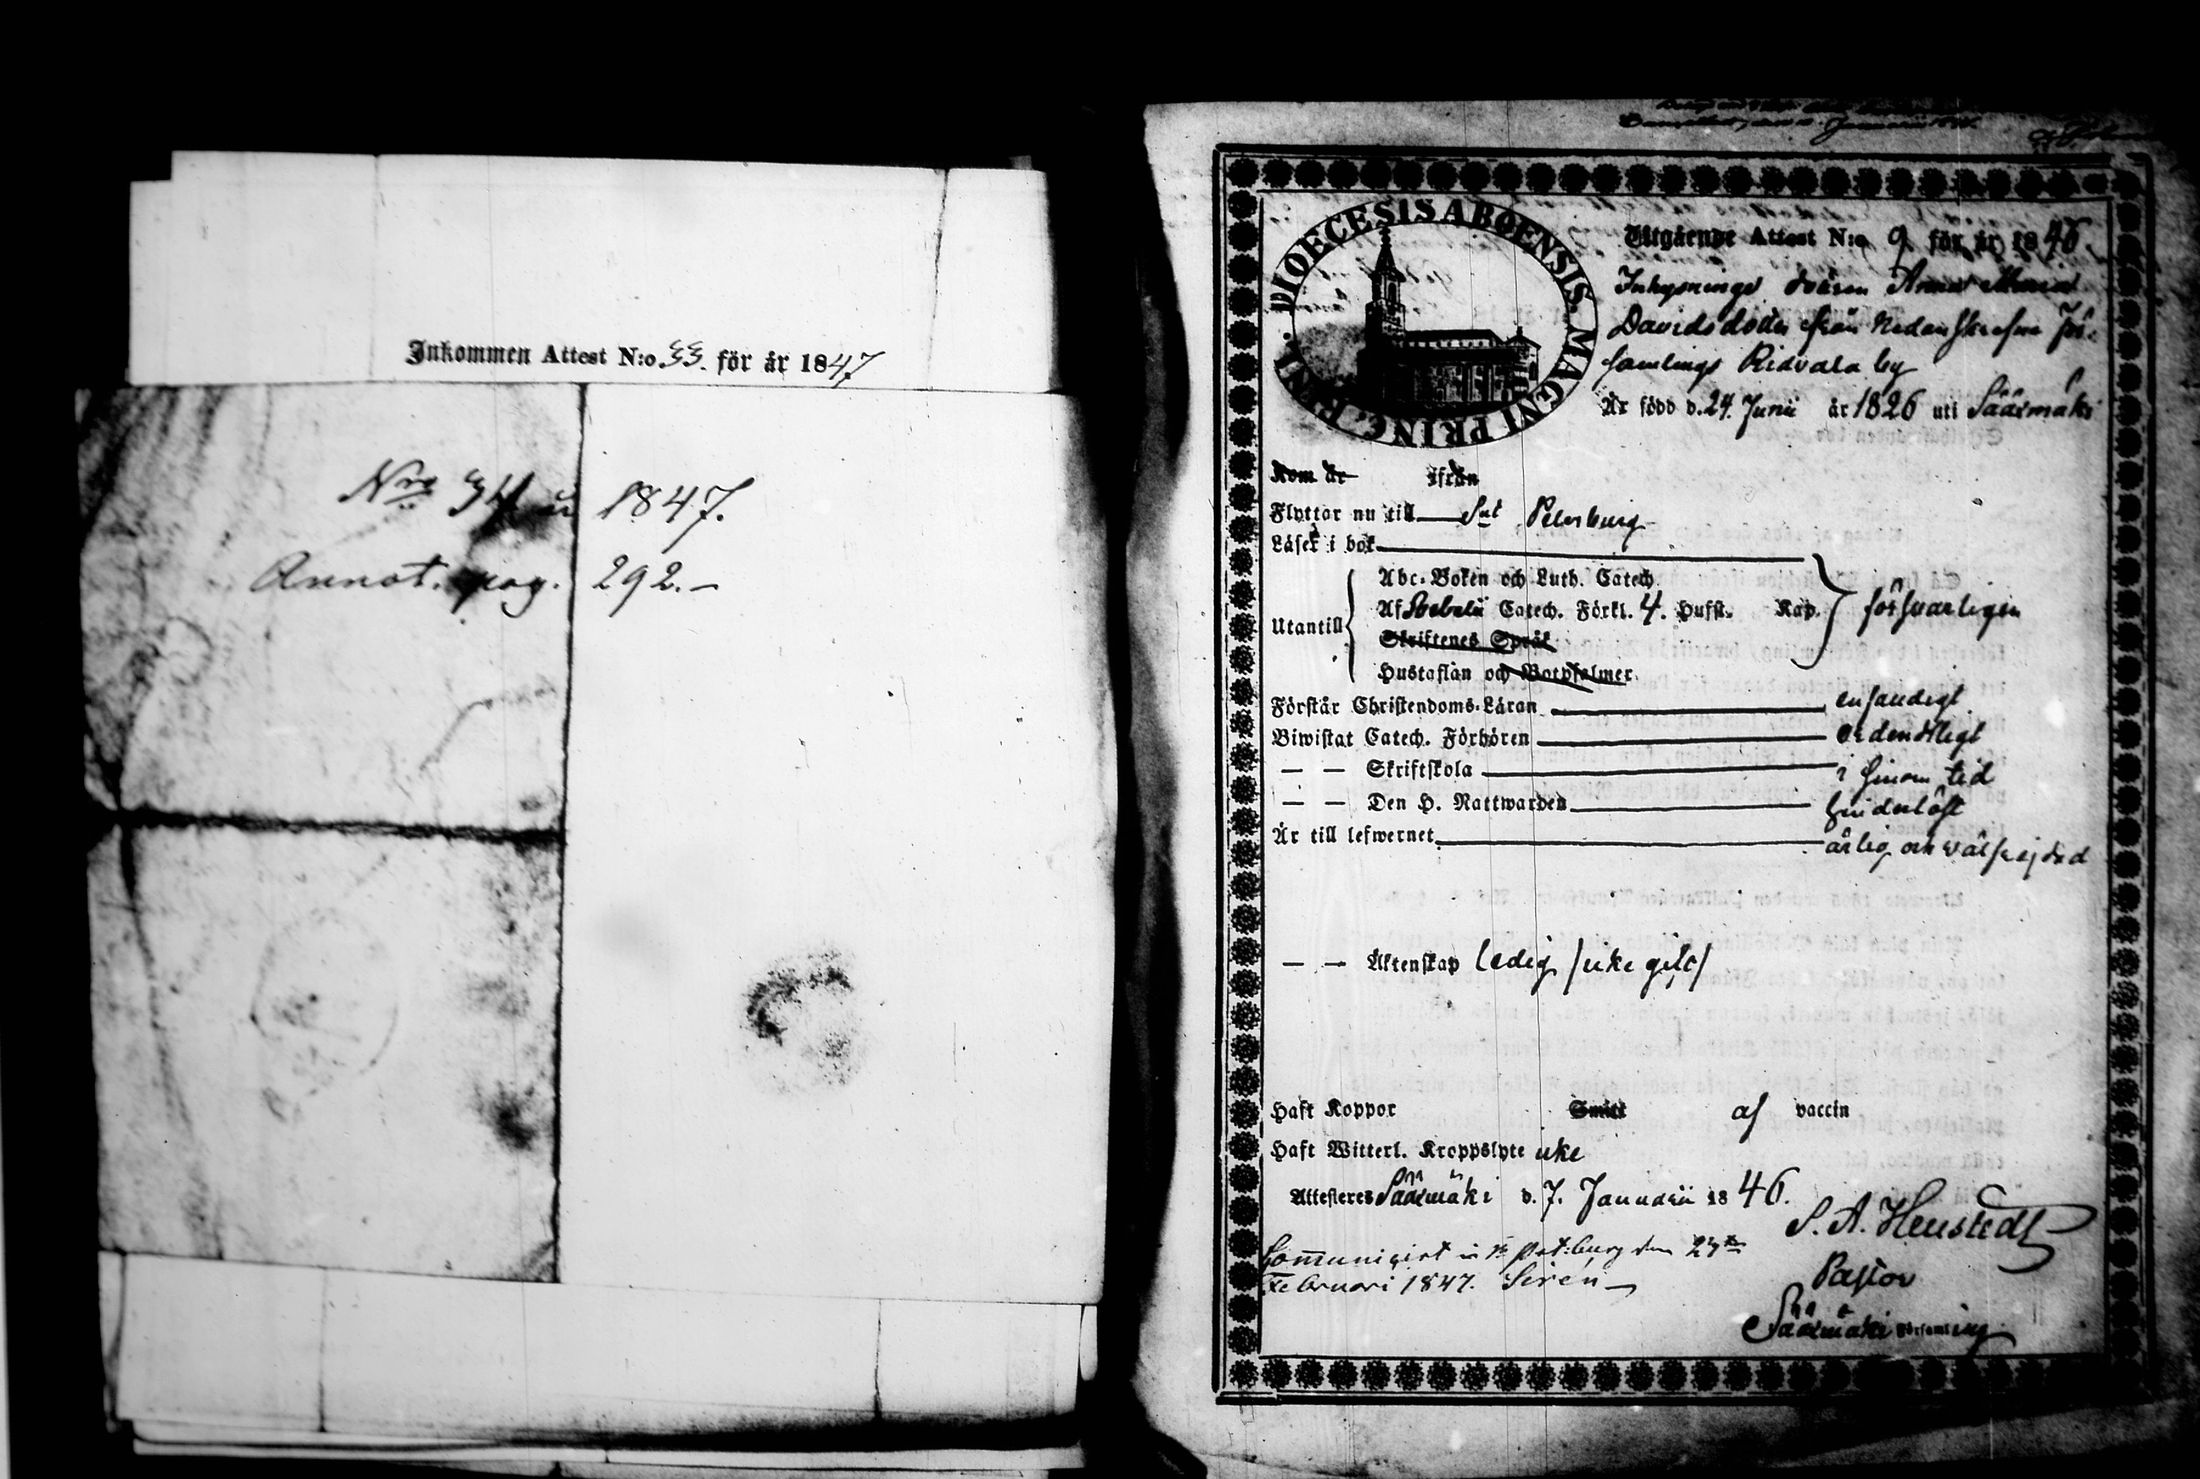 Inkommen Attest N:o 33. för år 1847
Nro 34 1847.
Annot. pag. 292.-
Januarii
DIOECESIS ABOENSIS. MAGNI PRINC. FINL.
Utgående Attest N:o 9 för år 1846.
Inhysnings Anna Maria
Davidsdotter från nedanskrefne För-
samlings Ridvala by
Är född d. 24. Junii år 1826 uti Säärmäki
Kom år ifrån
Flyttar nu till St Petersburg
Läser i bok
Utantill
Abc-Boken och Luth. Catech.
Af Svebelii Catech. Förkl. 4. Hufst. Kap.
Skriftenes Språk
Hustaflan och Botpsalmer.
försvarligen
Förstår Christendoms-Läran enfaldigt
Biwistat Catech. Förhören ordentligt
— — Skriftskola i sinom tid
— — Den H. Nattwarden hinderlöst
Är till lefwernet ärlig och välfrejdad
— — Äktenskap Ledig /icke gift/
Haft Koppor Smitt af vaccin
Haft Witterl. Kroppslyte icke
Attesteres Säärmäki d. 7. Januarii 1846.
S. A. Heurstedt
Pastor
Säärmäki Församling
Communicirt in St Petburg den 23ten
Februari 1847. Sirén